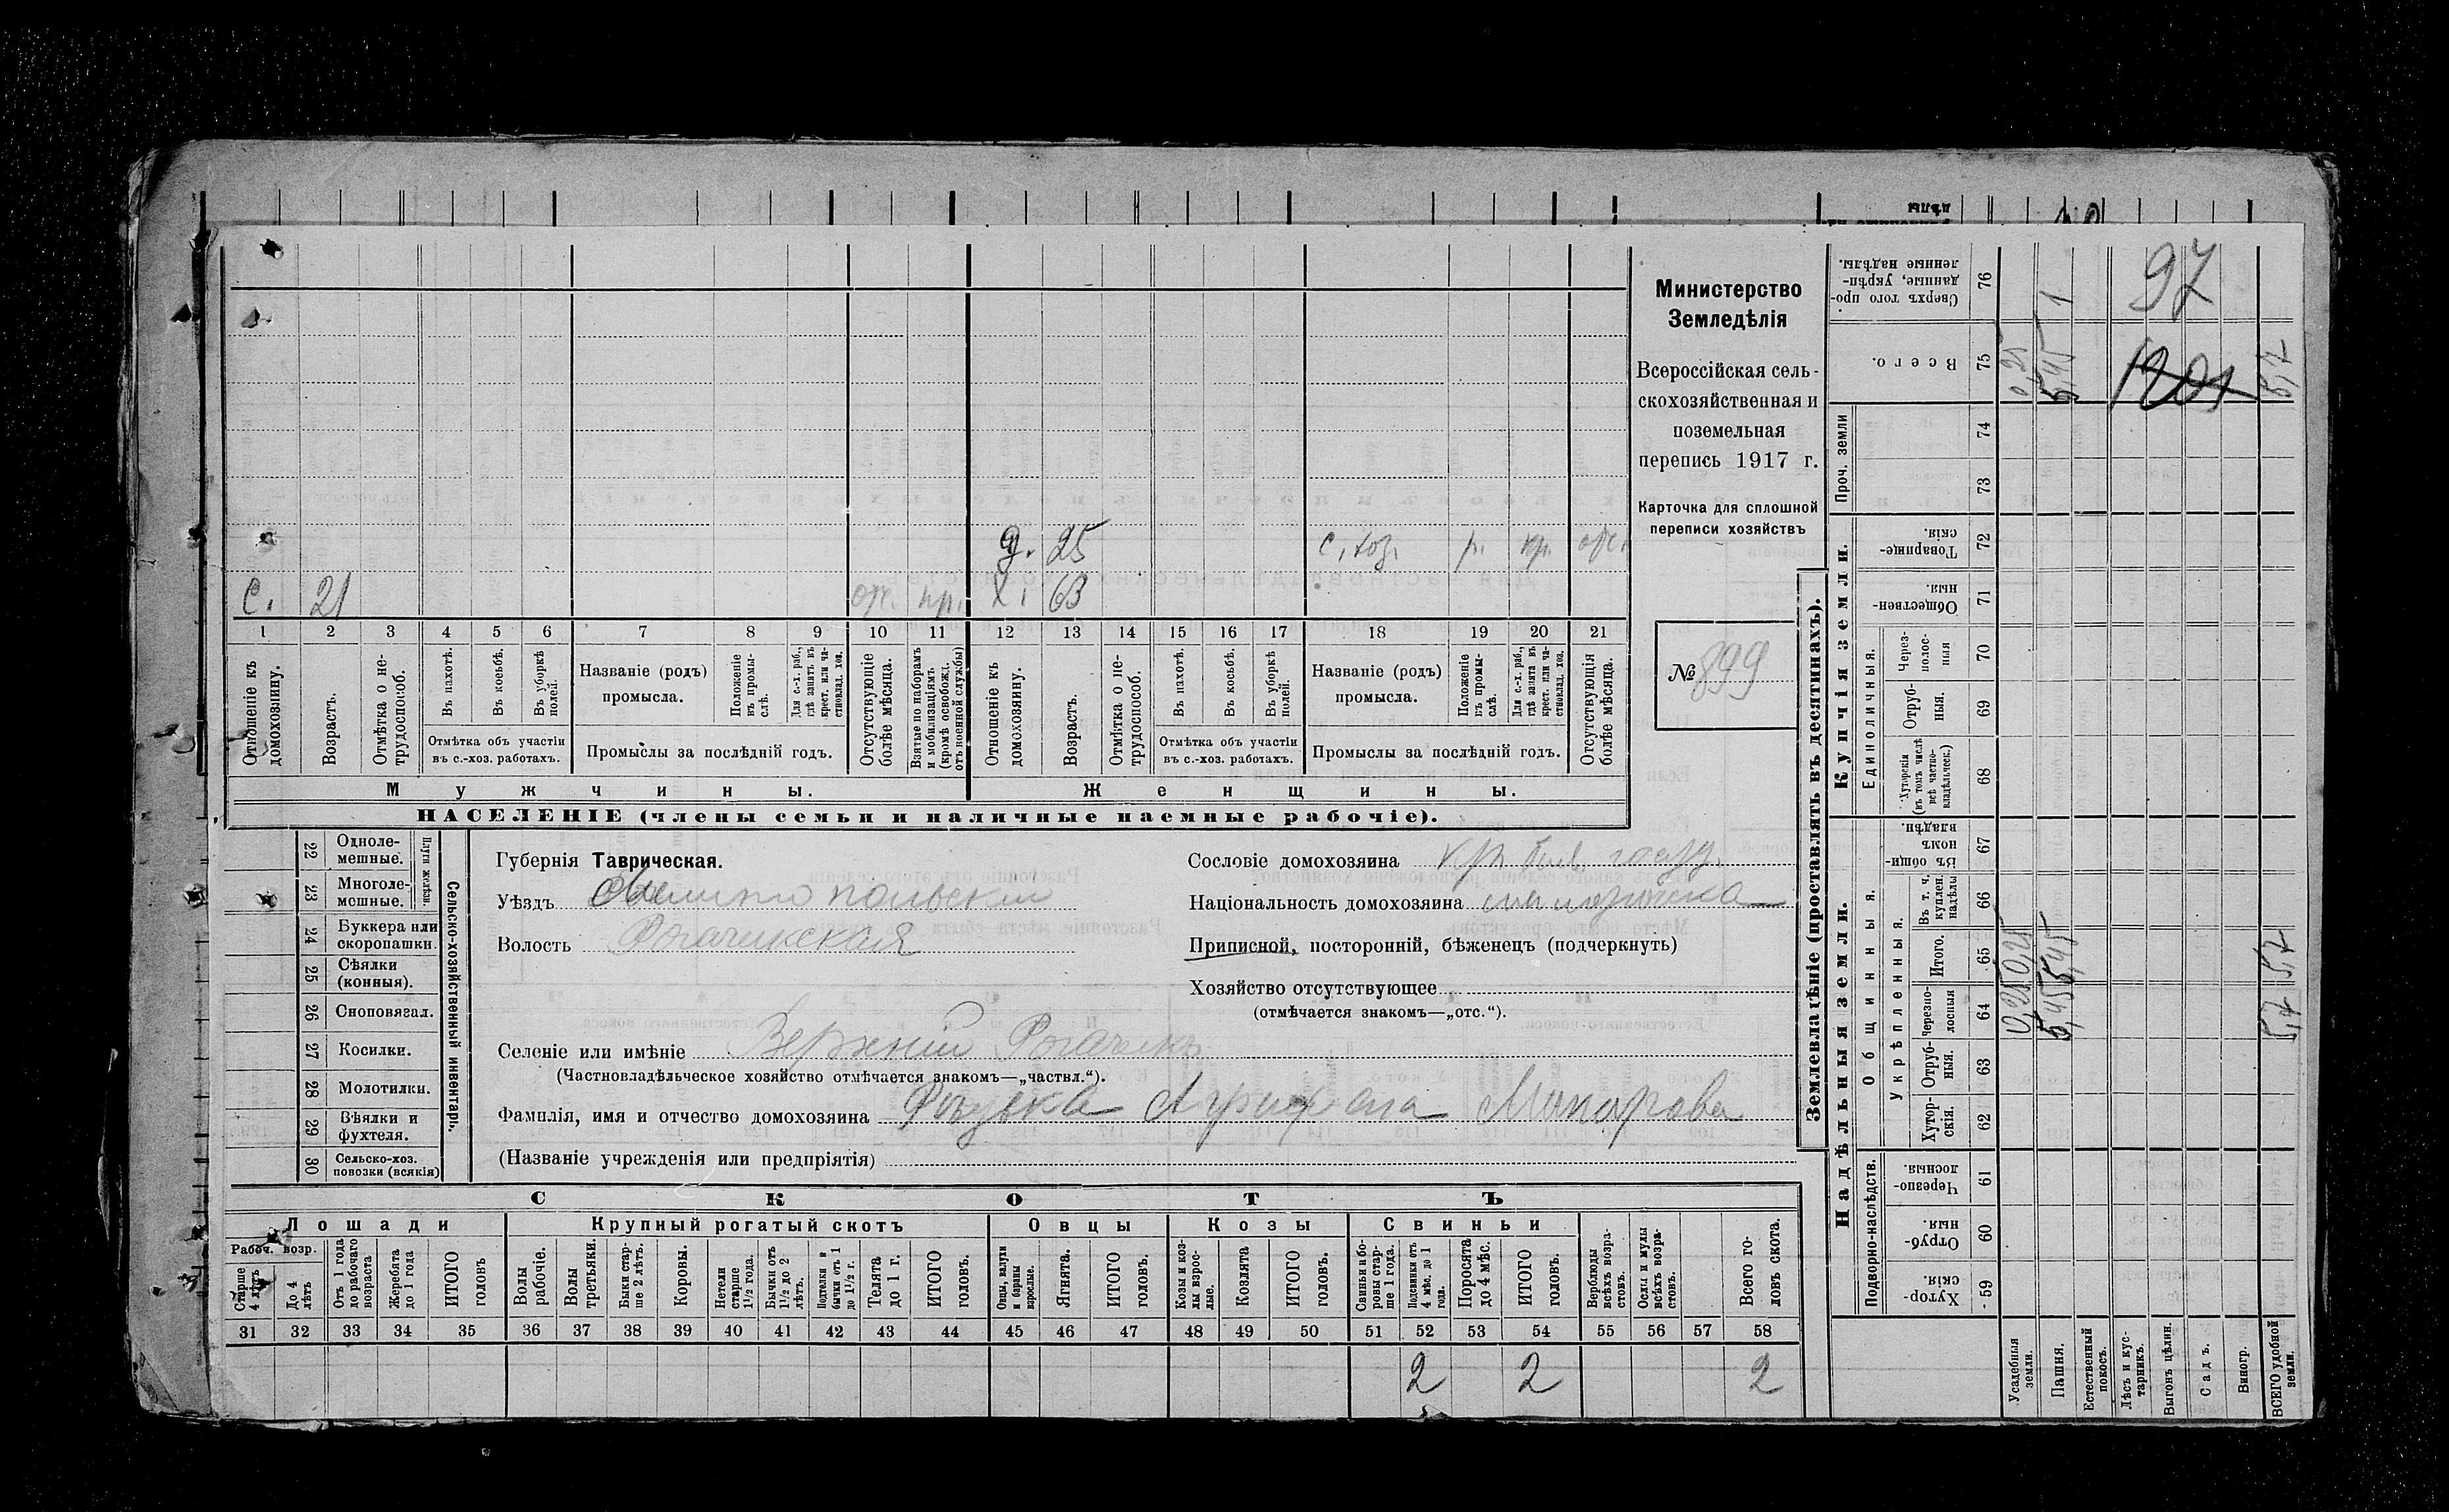 С. 21 отс. пр. Х. 63
д. 25 с. хоз. р. кр. отс.
1 2 3 4 5 6 7 8 9 10 11 12 13 14 15 16 17 18 19 20 21
Отношеніе къ домохозяину.
Возрастъ.
Отмѣтка о нетрудоспособ.
Въ пахотѣ.
Въ косьбѣ.
Въ уборкѣ полей.
Отмѣтка объ участіи
въ с.-хоз. работахъ.
Названіе (родъ)
промысла.
Положеніе въ промыслѣ.
Для с.-х. раб., гдѣ занятъ въ крест. или частновлад. хоз.
Промыслы за послѣдній годъ.
Отсутствующіе болѣе мѣсяца.
Взятые по наборамъ и мобилизаціямъ (кромѣ освобожд. отъ военной службы)
Отношеніе къ домохозяину.
Возрастъ.
Отмѣтка о нетрудоспособ.
Въ пахотѣ.
Въ косьбѣ.
Въ уборкѣ полей.
Отмѣтка объ участіи
въ с.-хоз. работахъ.
Названіе (родъ)
промысла.
Положеніе въ промыслѣ.
Для с.-х. раб., гдѣ занята въ крест. или частновлад. хоз.
Промыслы за послѣдній годъ.
Отсутствующія болѣе мѣсяца.
Мужчины. Женщины.
НАСЕЛЕНІЕ (члены семьи и наличные наемные рабочіе).
Министерство
Земледѣлія
Всероссійская сель-
скохозяйственная и
поземельная
перепись 1917 г.
Карточка для сплошной
переписи хозяйствъ
№ 899
22 Одноле-
мешные.
23 Многоле-
мешные.
Плуги желѣзн.
24 Буккера или
скоропашки.
25 Сѣялки
(конныя).
26 Сноповязал.
27 Косилки.
28 Молотилки.
29 Вѣялки и
фухтеля.
30 Сельско-хоз.
повозки (всякія)
Сельско-хозяйственный инвентарь.
Губернія Таврическая.
Уѣздъ Мелитопольскій
Волость Рогачикская
Сословіе домохозяина кр. быв. госуд.
Національность домохозяина
Приписной, посторонній, бѣженецъ (подчеркнуть)
Хозяйство отсутствующее
(отмѣчается знакомъ—„отс.“).
Селеніе или имѣніе Верхній Рогачикъ
(Частновладѣльческое хозяйство отмѣчается знакомъ—„частвл.“).
Фамилія, имя и отчество домохозяина Агрипина Макарова
(Названіе учрежденія или предпріятія)
СКОТЪ
Лошади Крупный рогатый скотъ Овцы Козы Свиньи
Рабоч. возр.
Старше 4 лѣтъ
До 4 лѣтъ
Отъ 1 года до рабочаго возраста
Жеребята до 1 года
ИТОГО головъ
Волы рабочіе.
Волы третьяки.
Быки старше 2 лѣтъ.
Коровы.
Нетели старше 1½ года.
Бычки отъ 1½ до 2 лѣтъ.
Подтелки и бычки отъ 1 до 1½ г.
Телята до 1 г.
ИТОГО головъ.
Овцы, валухи и бараны взрослые.
Ягнята.
ИТОГО головъ.
Козы и козлы взрослые.
Козлята
ИТОГО головъ.
Свиньи и боровы старше 1 года.
Подсвинки отъ 4 мѣс. до 1 года.
Поросята до 4 мѣс.
ИТОГО головъ.
Верблюды всѣхъ возрастовъ.
Ослы и мулы всѣхъ возрастовъ.
Всего головъ скота.
31 32 33 34 35 36 37 38 39 40 41 42 43 44 45 46 47 48 49 50 51 52 53 54 55 56 57 58
2 2 2
Землевладѣніе (проставлять въ десятинахъ).
Надѣльныя земли. Купчія земли.
Подворно-наслѣдств.
Общинныя.
Укрѣпленныя.
Единоличныя.
Проч. земли
Сверхъ того проданные, укрѣпленные надѣлы. 76 1
Всего. 75 0,25 5,45 5,7
74
73
Товарищескія. 72
Общественныя. 71
Черезполосныя 70
Отрубныя. 69
Хуторскія (въ томъ числѣ всѣ частновладѣльческ.) 68
Въ общиномъ владѣн. 67
Въ т. ч. куплен. надѣлы 66
Итого. 65 0,25 5,45 5,7
Черезполосныя 64 0,25 5,45 5,7
Отрубныя. 63
Хуторскія. 62
Черезполосныя. 61
Отрубныя. 60
Хуторскія. 59
Усадебныя земли.
Пашня.
Естественный покосъ.
Лѣсъ и кустарникъ.
Выгонъ цѣлин.
Садъ.
Виногр.
ВСЕГО удобной земли.
97
1201